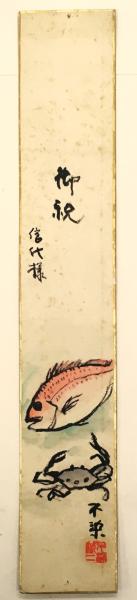 御祝
信代様
不染